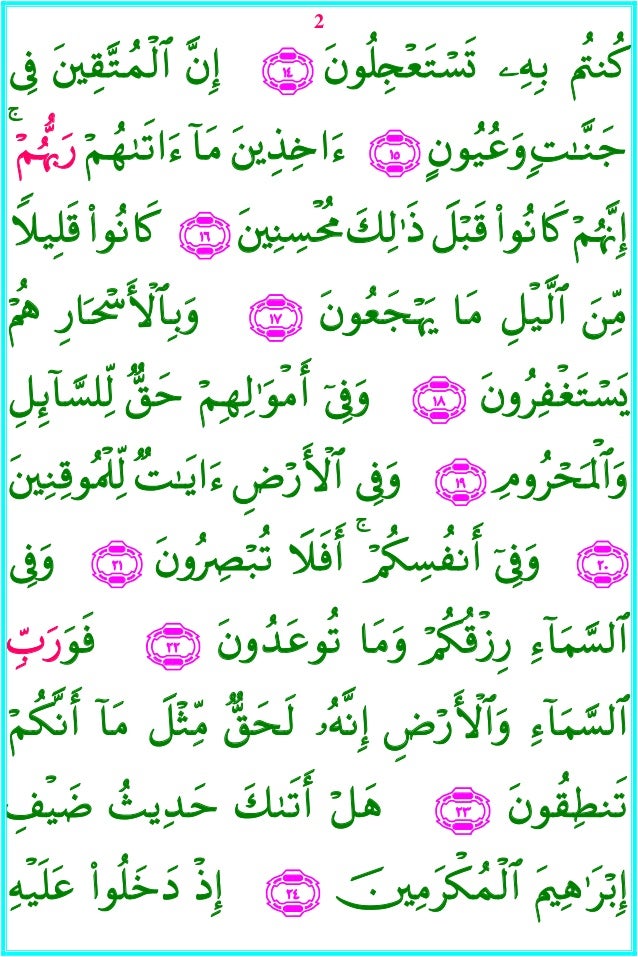 2
كُنتُم بِهِۦ تَسْتَعْجِلُونَ ١٤ إِنَّ ٱلْمُتَّقِينَ فِى
جَنَّـٰتٍ وَعُيُونٍ ١٥ ءَاخِذِينَ مَآ ءَاتَىٰهُمْ رَبُّهُمْ ۚ
إِنَّهُمْ كَانُوا۟ قَبْلَ ذَٰلِكَ مُحْسِنِينَ ١٦ كَانُوا۟ قَلِيلًا
مِّنَ ٱلَّيْلِ مَا يَهْجَعُونَ ١٧ وَبِٱلْأَسْحَارِ هُمْ
يَسْتَغْفِرُونَ ١٨ وَفِىٓ أَمْوَٰلِهِمْ حَقٌّ لِّلسَّآئِلِ
وَٱلْمَحْرُومِ ١٩ وَفِى ٱلْأَرْضِ ءَايَـٰتٌ لِّلْمُوقِنِينَ
٢٠ وَفِىٓ أَنفُسِكُمْ ۚ أَفَلَا تُبْصِرُونَ ٢١ وَفِى
ٱلسَّمَآءِ رِزْقُكُمْ وَمَا تُوعَدُونَ ٢٢ فَوَرَبِّ
ٱلسَّمَآءِ وَٱلْأَرْضِ إِنَّهُۥ لَحَقٌّ مِّثْلَ مَآ أَنَّكُمْ
تَنطِقُونَ ٢٣ هَلْ أَتَىٰكَ حَدِيثُ ضَيْفِ
إِبْرَٰهِيمَ ٱلْمُكْرَمِينَ ٢٤ إِذْ دَخَلُوا۟ عَلَيْهِ